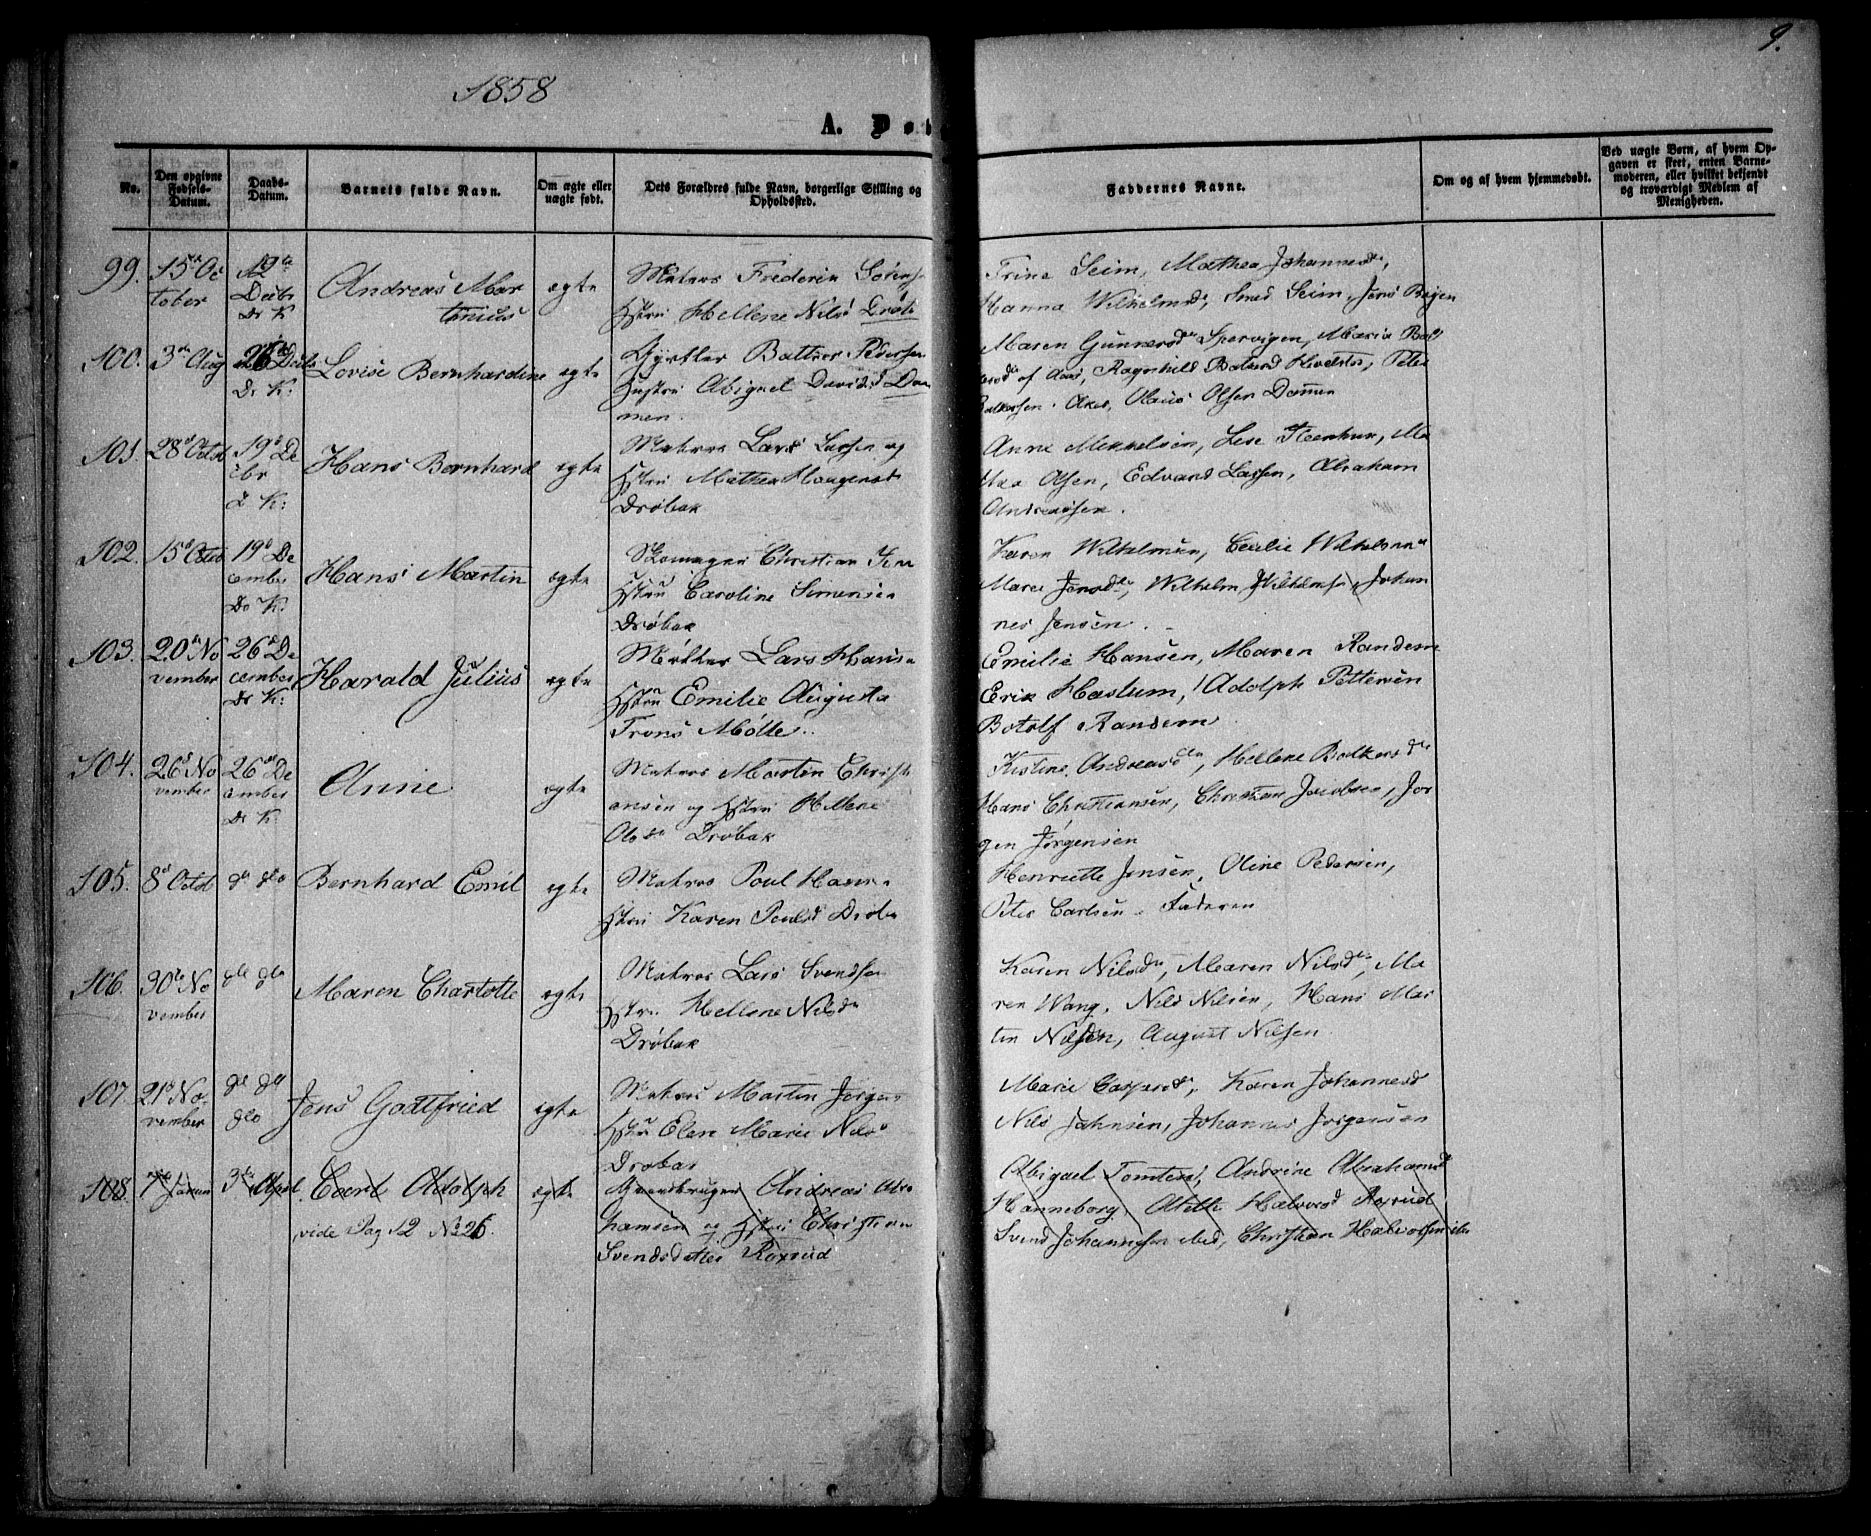 1858
9.
A. Døb
No.
Den opgivne Fødsels-Datum.
Daabs-Datum.
Barnets fulde Navn.
Om ægte eller uægte født.
Dets Forældres fulde Navn, borgerlige Stilling og Opholdssted.
Faddernes Navne.
Om og af hvem hjemmedøbt.
Ved uægte Børn, af hvem Opgaven er skeet, enten Barnemoderen, eller hvilket bekjendt og troværdigt Medlem af Menigheden.
99. 15 Oc
tober
19
Debr
Dr K
Andreas Mar
tinius
ægte
Matros Frederik Sørens
Hstru Hellene Nilsd Drøb
Trine Seim, Mathea Johannesd,
Hanna Wilhelmsd, Seim, Jens
100. 3 Aug
26 Debr
Dr K:
Lovise Bernhardine
ægte
Gjørtler Baltser Pedersen
Hustru Abigael Davidsd Dam
men.
Maren Gunnersd Spervigen, Maria
af Aas, Ragnhild Hvelstø, Peter
Olaus Olsen Dammen
101. 28 Octob
19 De
cbr
K:
Hans Bernhard
ægte
Matros Lars Larsen og
Hstru Mathea Haagensd
Drøbak
Anne Mikkelsen, Lise Steenhus, Ma
thea Olsen, Edvard Larsen, Abraham
Andreasen.
102. 15 Octob
19 De
cember
Dr K:
Hans Martin
ægte
Skomager Christian Jen
Hstru Caroline Simensen
Drøbak
Karen Wilhelmsen, Cecilie Wilhelmsen
Maren Jensd, Wilhelm Wilhelmsen, Johan
nes Jensen.
103. 20 No
vember
26 De
cember
Dr K:
Harald Julius
ægte
Møller Lars Hanse
Hstru Emilie Augusta
Frons Mølle.
Emilie Hansen, Maren Randem
Erik Haslum, Adolph Pettersen
Botolf Randem
104. 26 No
vember
26 De
cember
Dr K
Anne
ægte
Matros Martin Christi
ansen og Hstru Hellene
Olsd Drøbak
Kistine Andreasd, Hellene Balkersd
Hans Christiansen, Christian Jacobsen, Jør
gen Jørgensen
105. 8 Octob
do dlo
Bernhard Emil
ægte
Matros Poul Hanse
Hstru Karen Poulsd Drøba
Henriette Jensen, Oline Pedersen,
Peter Carlsen. Faderen
106. 30 No
vember
dlo dlo
Maren Charlotte
ægte
Matros Lars Svendsen
Hstru Hellene Nilsd
Drøbak
Karen Nilsd, Maren Nilsd, Ma
ren Wang, Nils Nilsen, Hans Mar
tin Nilsen, August Nilsen
107. 21 No
vember
dlo dlo
dlo
Jens Godtfried
ægte
Matros Martin Jørgen
Hstru Elen Marie Nils
Drøbak
Marie Caspersd, Karen Johannesd
Nils Jahnsen, Johannes Jørgensen
108. 7 Januar
3 April
Evert Adolph
vide Pag 12 No 26.
ægte
Gaardbruger Andreas Abra
hamsen og Hstru Christiane
Svendsdatter Roxrud
Abigael Tomters, Andrine Abrahamsd
Hanneborg, Halvorsd Roxrud
Svend Johannesen ibid, Christian Halvorsen ibid